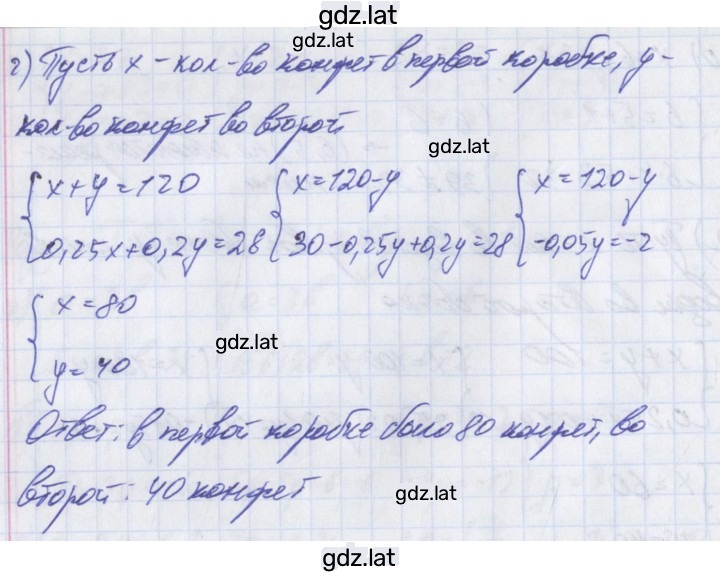 gdz.lat
gdz.lat
г) Пусть x - кол-во конфет в первой коробке, y -
кол-во конфет во второй
gdz.lat
{ x + y = 120 { x = 120 - y { x = 120 - y
0,25x + 0,2y = 28 30 - 0,25y + 0,2y = 28 -0,05y = -2
{ x = 80
gdz.lat
y = 40
Ответ: в первой коробке было 80 конфет, во
второй: 40 конфет
gdz.lat
gdz.lat